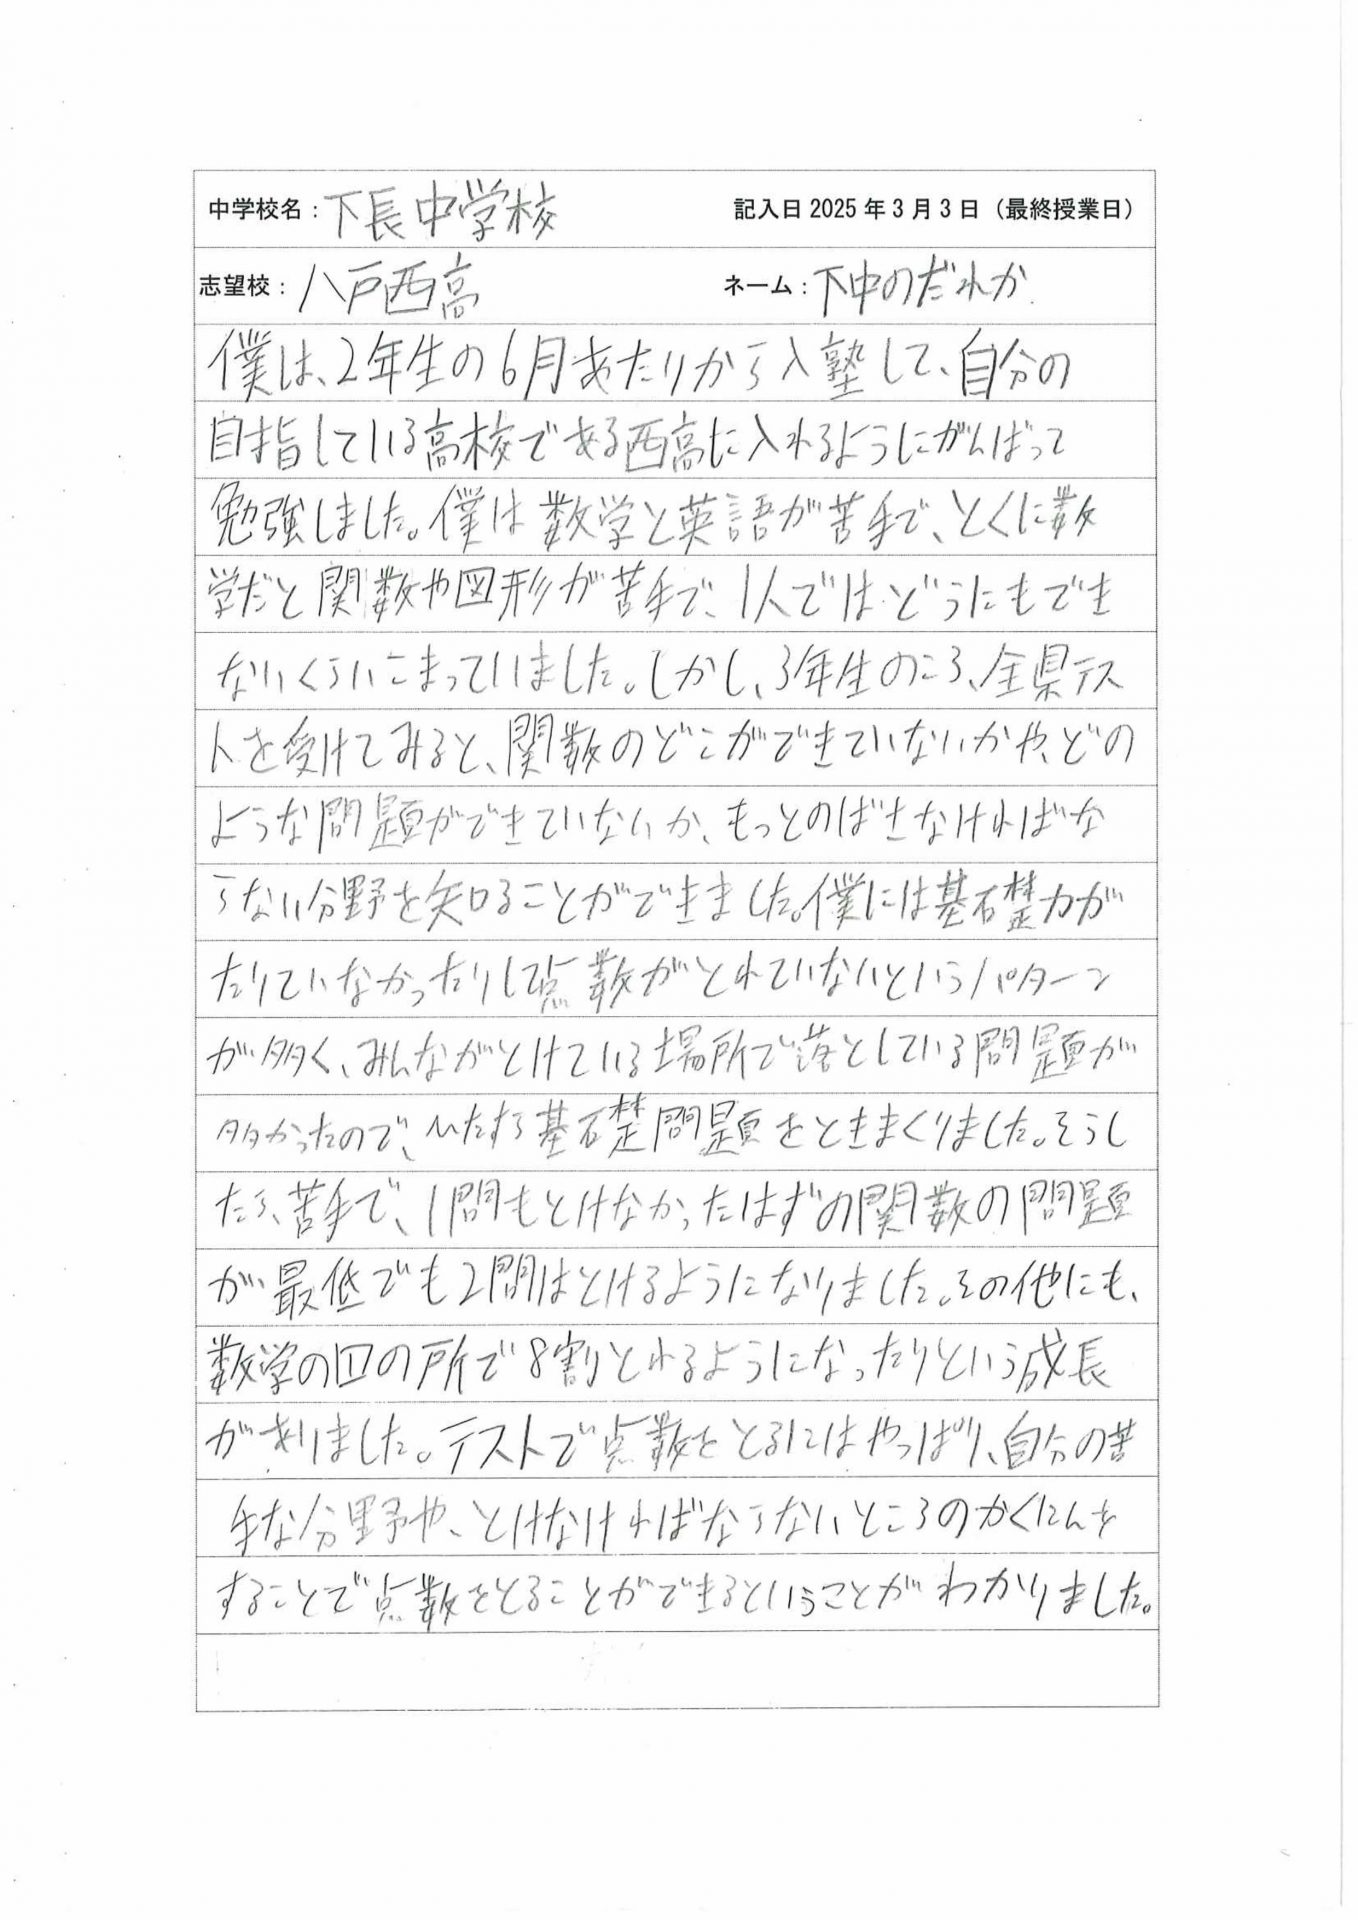 中学校名：下長中学校 記入日 2025 年 3 月 3 日（最終授業日）
志望校：八戸西高 ネーム：下中のだれか
僕は、2年生の6月あたりから入塾して、自分の
目指している高校である西高に入れるようにがんばって
勉強しました。僕は数学と英語が苦手で、とくに数
学だと関数や図形が苦手で、1人ではどうにもでき
ないくらいこまっていました。しかし、3年生のころ、全県テス
トを受けてみると、関数のどこができていないかや、どの
ような問題ができていないか、もっとのばさなければな
らない分野を知ることができました。僕には基礎力が
たりていなかったりして点数がとれていないというパターン
が多く、みんながとけている場所で落としている問題が
多かったので、いたすら基礎問題をときまくりました。そうし
たら、苦手で、1問もとけなかったはずの関数の問題
が最低でも2問はとけるようになりました。その他にも、
数学の四の所で8割とれるようになったりという成長
がありました。テストで点数をとるにはやっぱり、自分の苦
手な分野や、とけなければならないところのかくにんを
することで点数をとることができるということがわかりました。